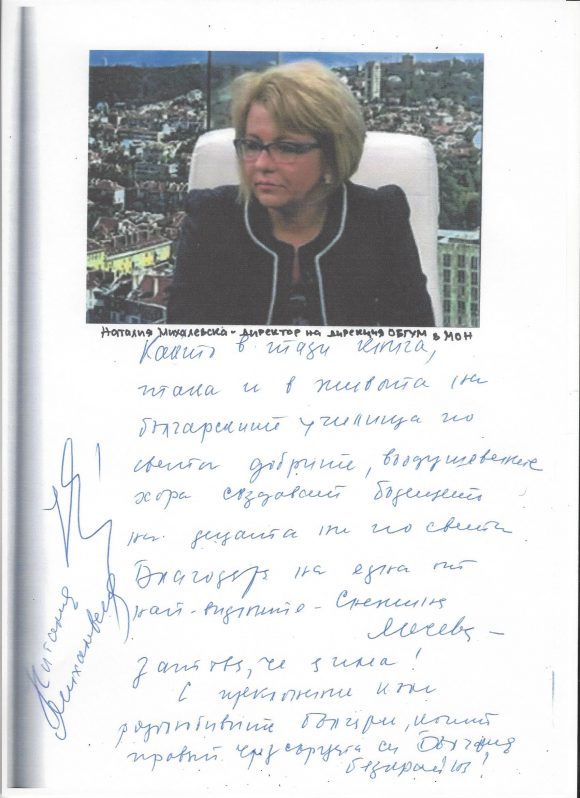 Наталия Михалевска - директор на дирекция ОБГУМ в МОН
Както в тази книга,
така и в живота на
българските училища по
света добрите, въодушевените
хора създават бъдещето
на децата ни по света
Благодаря на една от
най-видните - Снежина
Мечева -
затова, че я има!
С преклонение към
родолюбивите българи, които
правят чрез сърцата си България
безкрайна!
Наталия
Михалевска